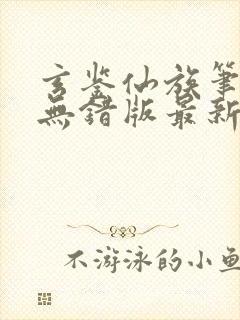 玄鉴仙族筆
無錯版最新
不游泳的小鱼